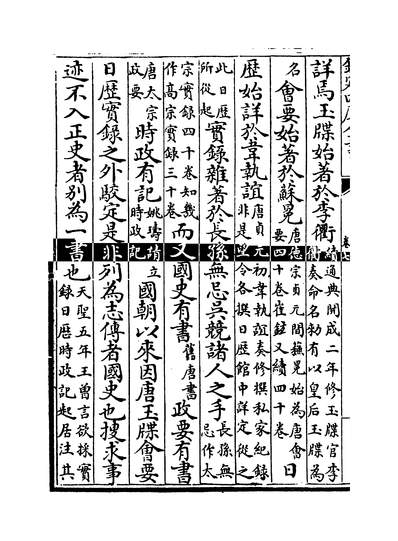 詳焉玉牒始著於李衢通典開成二年修玉牒官李衢奏命名勅有以皇后玉牒為
名會要始著於蘇冕唐德宗貞元間撫冕始為唐會要四十卷崔鉉又續四十卷日
歷始詳於韋執誼唐貞元初韋執誼奏修撰私家紀錄非是望令各撰日歷館中詳定從之
此日歷所從起實錄雜著於長孫無忌吳競諸人之手長孫無忌作太
宗實錄四十卷知幾作高宗實錄三十卷而又國史有書舊唐書政要有書
唐太宗政要時政有記姚璹請立時政記國朝以來因唐玉牒會要
日歷實錄之外駮定是非列為志傳者國史也搜求事
迹不入正史者别為一書也天聖五年王曾言欲採實錄日歷時政記起居注其